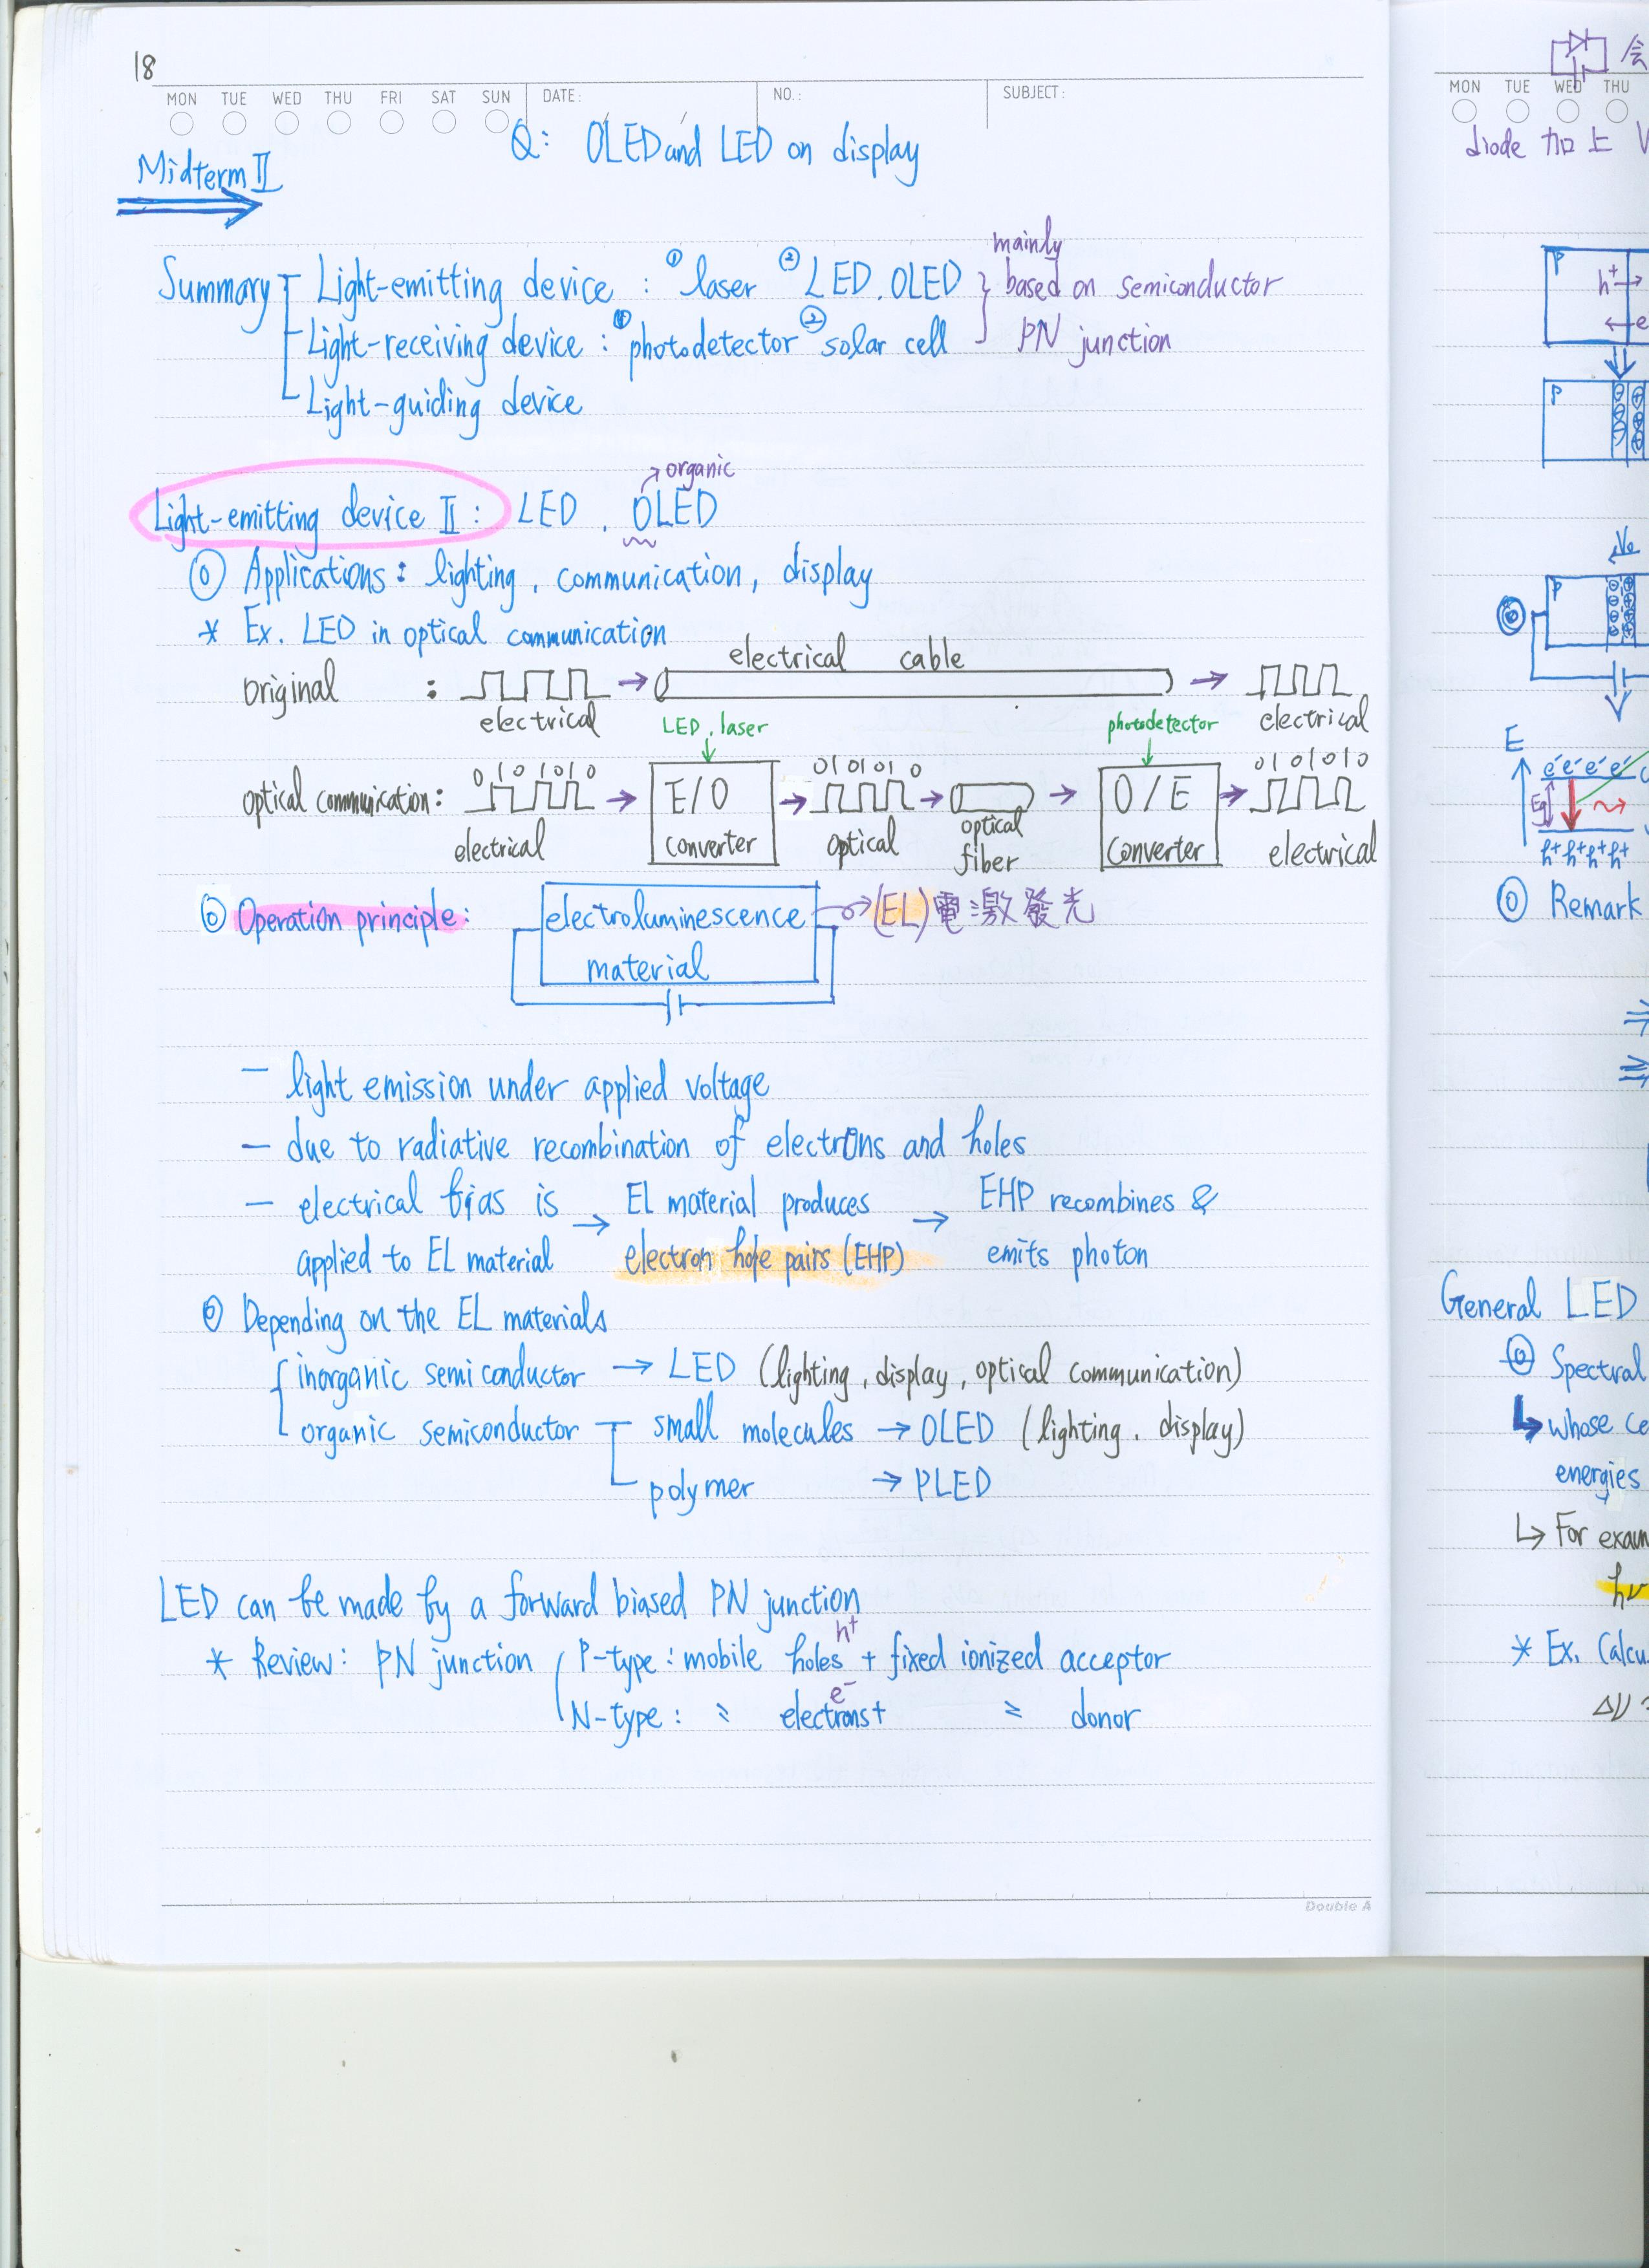 18
MON TUE WED THU FRI SAT SUN DATE: NO.: SUBJECT:
Q: OLED and LED on display
Midterm II
Summary Light-emitting device : ① laser ② LED. OLED mainly based on semiconductor
Light-receiving device : ① photodetector ② solar cell PN junction
Light-guiding device
organic
Light-emitting device II : LED . OLED
Applications : lighting, communication, display
* Ex. LED in optical communication
electrical cable
original : electrical electrical
LED, laser photodetector
0 1 0 1 0 1 0 0 1 0 1 0 1 0 0 1 0 1 0 1 0
optical communication: E/O O/E
electrical converter optical optical fiber converter electrical
Operation principle: electroluminescence (EL) 電激發光
material
- light emission under applied voltage
- due to radiative recombination of electrons and holes
- electrical bias is → EL material produces → EHP recombines &
applied to EL material electron hole pairs (EHP) emits photon
Depending on the EL materials
inorganic semiconductor → LED (lighting, display, optical communication)
organic semiconductor small molecules → OLED (lighting, display)
polymer → PLED
LED can be made by a forward biased PN junction
h+
* Review: PN junction P-type : mobile holes + fixed ionized acceptor
e-
N-type : 〃 electrons + 〃 donor
Double A
MON TUE WED THU
diode 加上 V
P h+ e
P
Ve
P
E
e- e- e- e-
Eg
h+ h+ h+ h+
Remark
General LED
Spectral
whose ce
energies
For exam
hν
* Ex. Calcu
Δν